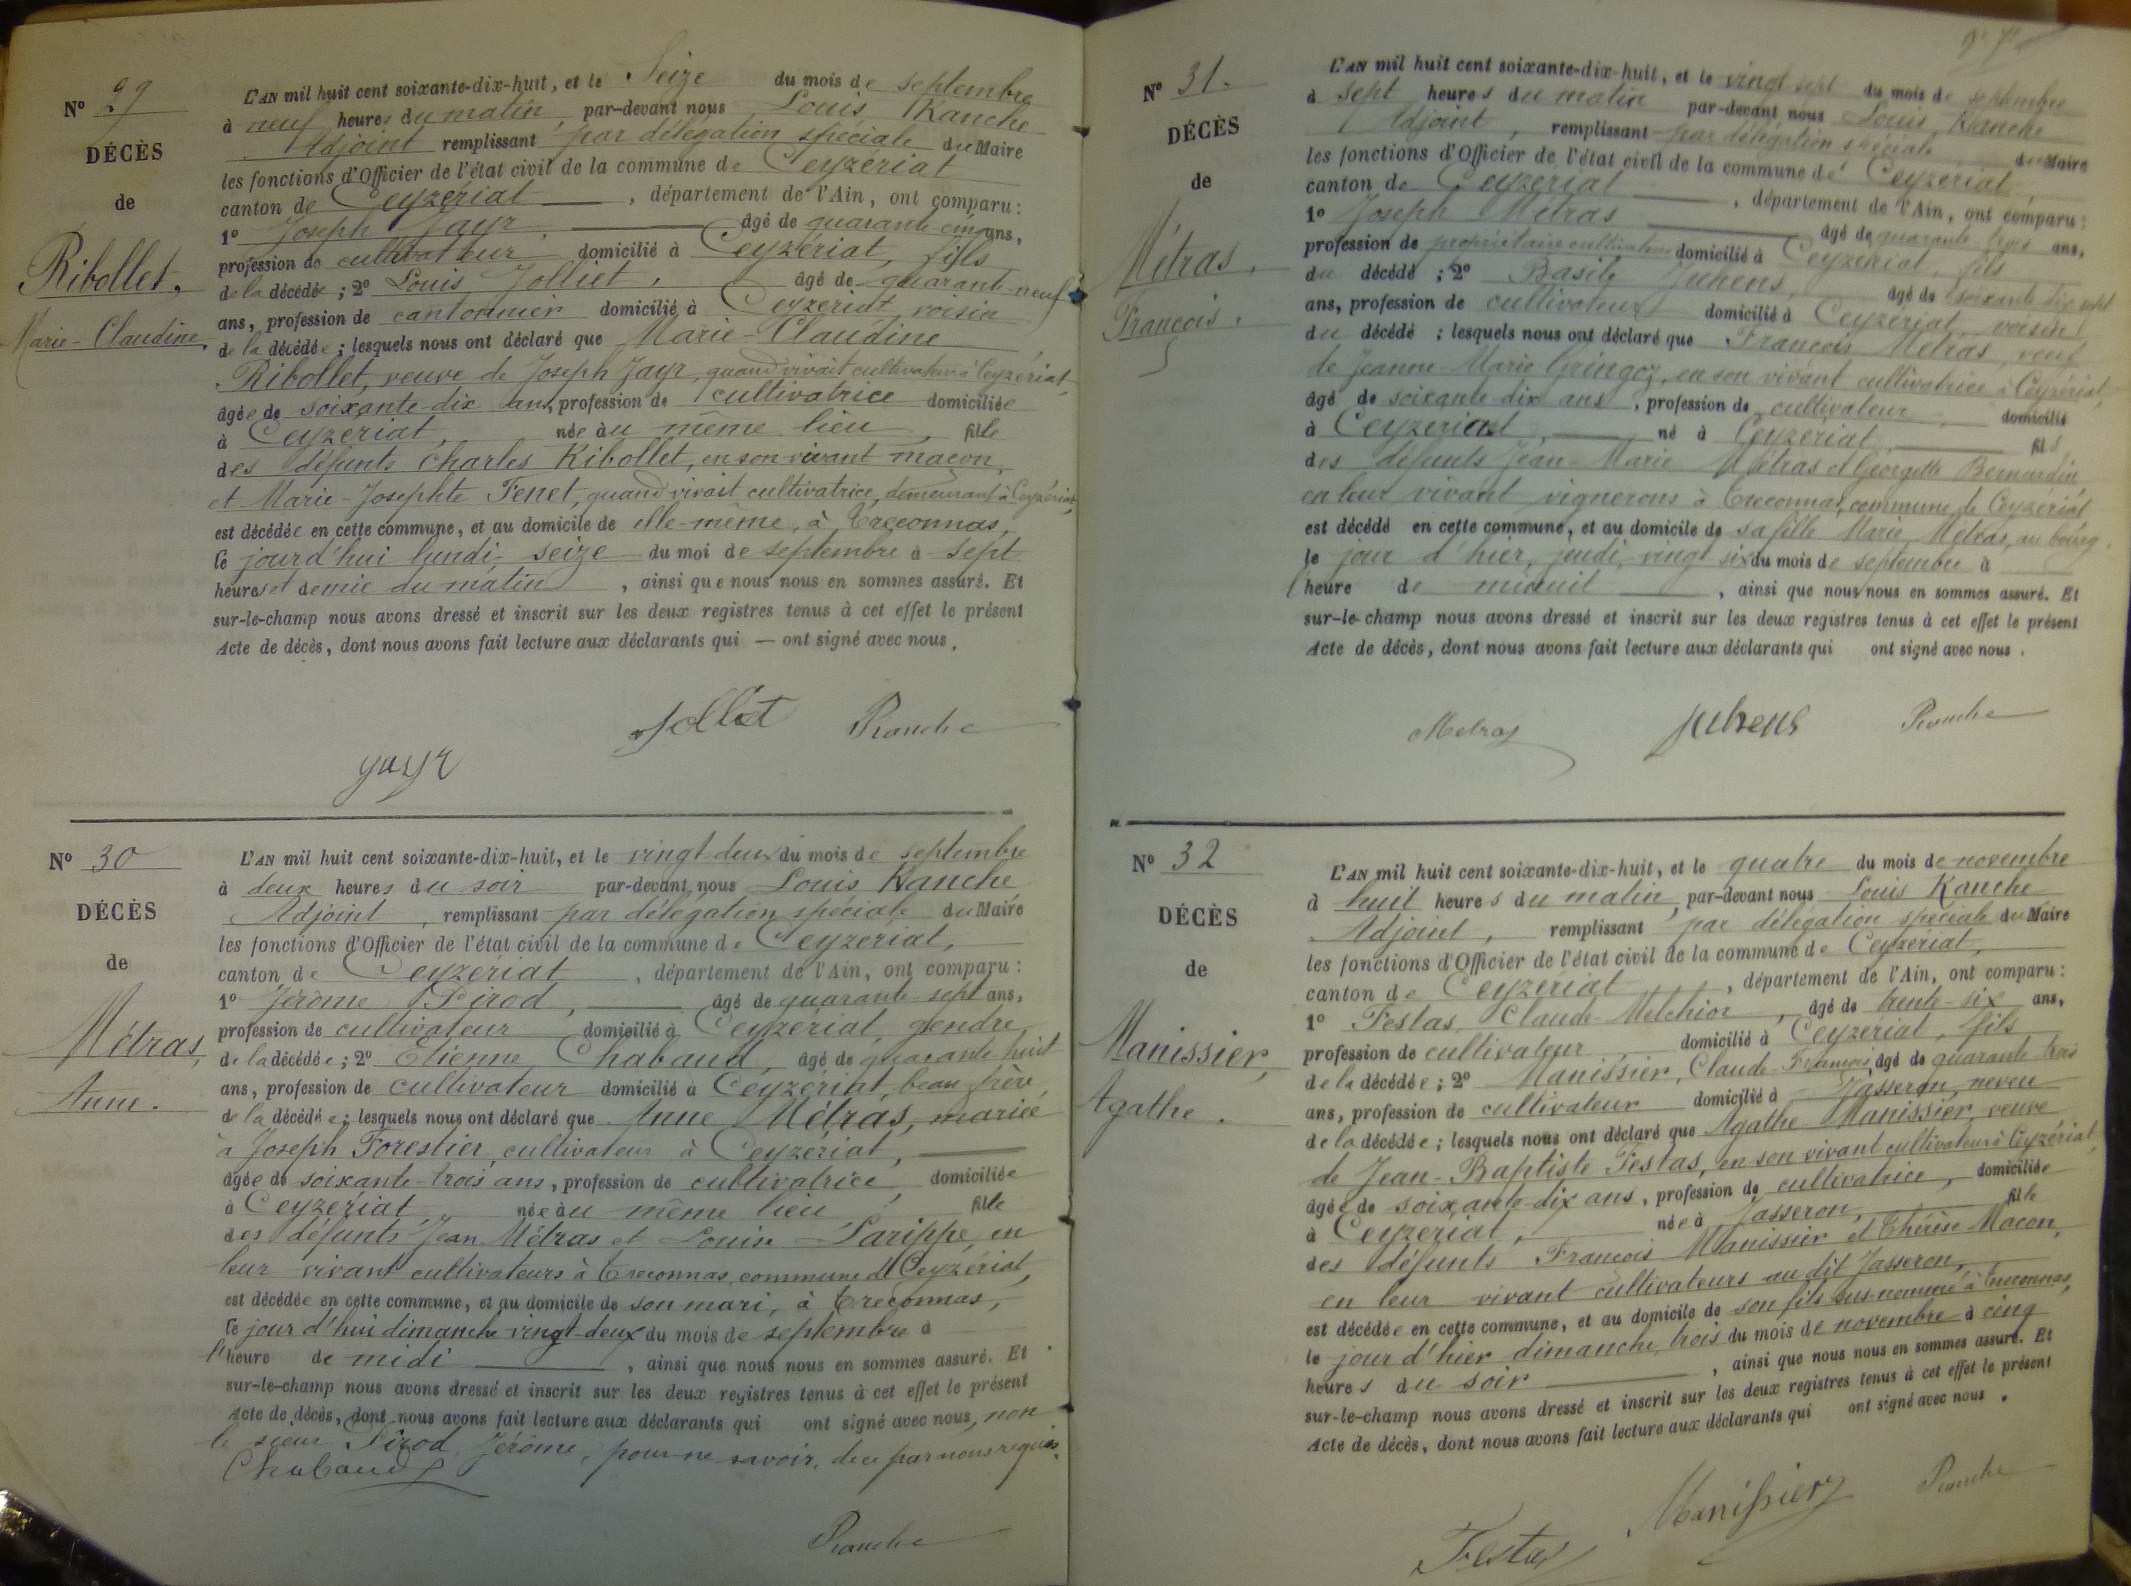 Nº 29
DÉCÈS
de
Ribollet,
Marie-Claudine,
L'AN mil huit cent soixante-dix-huit, et le Seize du mois de septembre
à neuf heures du matin, par-devant nous Louis Ranche
Adjoint remplissant par délégation spéciale du Maire
les fonctions d'Officier de l'état civil de la commune de Ceyzériat
canton de Ceyzériat, département de l'Ain, ont comparu :
1º Joseph Jayr, âgé de quarante cinq ans,
profession de cultivateur domicilié à Ceyzériat, fils
de la décédée ; 2º Louis Jolliet, âgé de quarante-neuf
ans, profession de cantonnier domicilié à Ceyzeriat, voisin
de la décédée ; lesquels nous ont déclaré que Marie-Claudine
Ribollet, veuve de Joseph Jayr, quand vivait cultivateur à Ceyzériat,
âgée de soixante-dix ans, profession de cultivatrice domiciliée
à Ceyzeriat, née au même lieu, fille
des défunts Charles Ribollet, en son vivant maçon,
et Marie-Josephte Fenet, quand vivait cultivatrice, demeurant à Ceyzériat,
est décédée en cette commune, et au domicile de elle-même, à Treconnas,
le jourd'hui lundi, seize du moi de septembre à sept
heures et demie du matin, ainsi que nous nous en sommes assuré. Et
sur-le-champ nous avons dressé et inscrit sur les deux registres tenus à cet effet le présent
Acte de décès, dont nous avons fait lecture aux déclarants qui — ont signé avec nous.
Jolliet Ranche
Jayr
Nº 30
DÉCÈS
de
Métras,
Anne.
L'AN mil huit cent soixante-dix-huit, et le vingt-deux du mois de septembre
à deux heures du soir par-devant nous Louis Ranche
Adjoint, remplissant par délégation spéciale du Maire
les fonctions d'Officier de l'état civil de la commune de Ceyzériat,
canton de Ceyzériat, département de l'Ain, ont comparu :
1º Jérôme Pirod, âgé de quarante-sept ans,
profession de cultivateur domicilié à Ceyzériat, gendre
de la décédée ; 2º Etienne Chabaud, âgé de quarante huit
ans, profession de cultivateur domicilié à Ceyzériat, beau-frère
de la décédée ; lesquels nous ont déclaré que Anne Métras, mariée
à Joseph Forestier, cultivateur à Ceyzériat,
âgée de soixante-trois ans, profession de cultivatrice, domiciliée
à Ceyzériat, née au même lieu, fille
des défunts Jean Métras et Louise Larippe, en
leur vivant cultivateurs à Treconnas, commune de Ceyzériat,
est décédée en cette commune, et au domicile de son mari, à Treconnas,
le jour d'hui dimanche vingt-deux du mois de septembre à
l'heure de midi, ainsi que nous nous en sommes assuré. Et
sur-le-champ nous avons dressé et inscrit sur les deux registres tenus à cet effet le présent
Acte de décès, dont nous avons fait lecture aux déclarants qui ont signé avec nous, non
le sieur Pirod Jérôme, pour ne savoir, de ce par nous requis.
Chabaud
Ranche
Nº 31.
DÉCÈS
de
Métras,
François.
L'AN mil huit cent soixante-dix-huit, et le vingt sept du mois de septembre
à sept heures du matin par-devant nous Louis Ranche
Adjoint, remplissant par délégation spéciale du Maire
les fonctions d'Officier de l'état civil de la commune de Ceyzeriat,
canton de Ceyzeriat, département de l'Ain, ont comparu :
1º Joseph Métras âgé de quarante trois ans,
profession de propriétaire cultivateur domicilié à Ceyzeriat, fils
du décédé ; 2º Basile Juhens, âgé de soixante dix sept
ans, profession de cultivateur domicilié à Ceyzériat, voisin
du décédé ; lesquels nous ont déclaré que François Métras, veuf
de Jeanne-Marie Gringoz, en son vivant cultivatrice à Ceyzériat,
âgé de soixante dix ans, profession de cultivateur domicilié
à Ceyzeriat, né à Ceyzériat, fils
des défunts Jean-Marie Métras et Georgette Bernardin
en leur vivant vignerons à Treconnas, commune de Ceyzériat
est décédé en cette commune, et au domicile de sa fille Marie Métras, au bourg,
le jour d'hier, jeudi, vingt six du mois de septembre à
l'heure de minuit, ainsi que nous nous en sommes assuré. Et
sur-le-champ nous avons dressé et inscrit sur les deux registres tenus à cet effet le présent
Acte de décès, dont nous avons fait lecture aux déclarants qui ont signé avec nous.
Metras Juhens Ranche
Nº 32
DÉCÈS
de
Manissier,
Agathe.
L'AN mil huit cent soixante-dix-huit, et le quatre du mois de novembre
à huit heures du matin, par-devant nous Louis Ranche
Adjoint, remplissant par délégation spéciale du Maire
les fonctions d'Officier de l'état civil de la commune de Ceyzériat,
canton de Ceyzériat, département de l'Ain, ont comparu :
1º Festas, Claude-Melchior, âgé de trente-six ans,
profession de cultivateur, domicilié à Ceyzeriat, fils
de la décédée ; 2º Manissier, Claude-François, âgé de quarante trois
ans, profession de cultivateur domicilié à Jasseron, neveu
de la décédée ; lesquels nous ont déclaré que Agathe Manissier, veuve
de Jean-Baptiste Festas, en son vivant cultivateur à Ceyzériat,
âgée de soixante-dix ans, profession de cultivatrice, domiciliée
à Ceyzériat, née à Jasseron, fille
des défunts François Manissier et Thérèse Macon,
en leur vivant cultivateurs au dit Jasseron,
est décédée en cette commune, et au domicile de son fils sus-nommé à Treconnas,
le jour d'hier dimanche, trois du mois de novembre à cinq
heures du soir, ainsi que nous nous en sommes assuré. Et
sur-le-champ nous avons dressé et inscrit sur les deux registres tenus à cet effet le présent
Acte de décès, dont nous avons fait lecture aux déclarants qui ont signé avec nous.
Festas Manissier Ranche